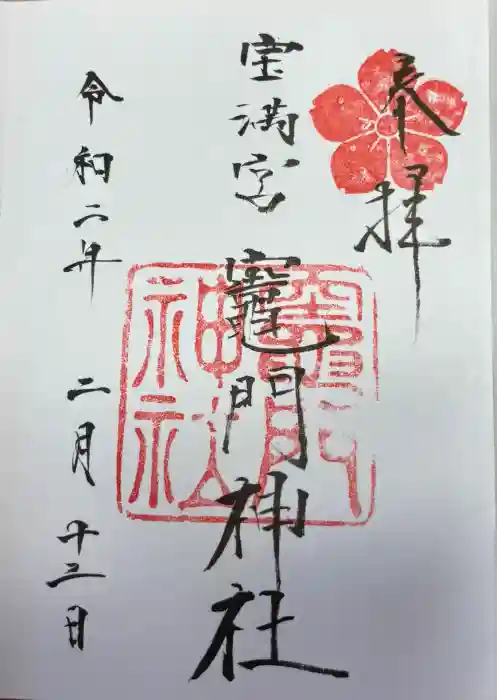 奉拝
宝満宮 竈門神社
令和二年 二月 十二日
竈門神社